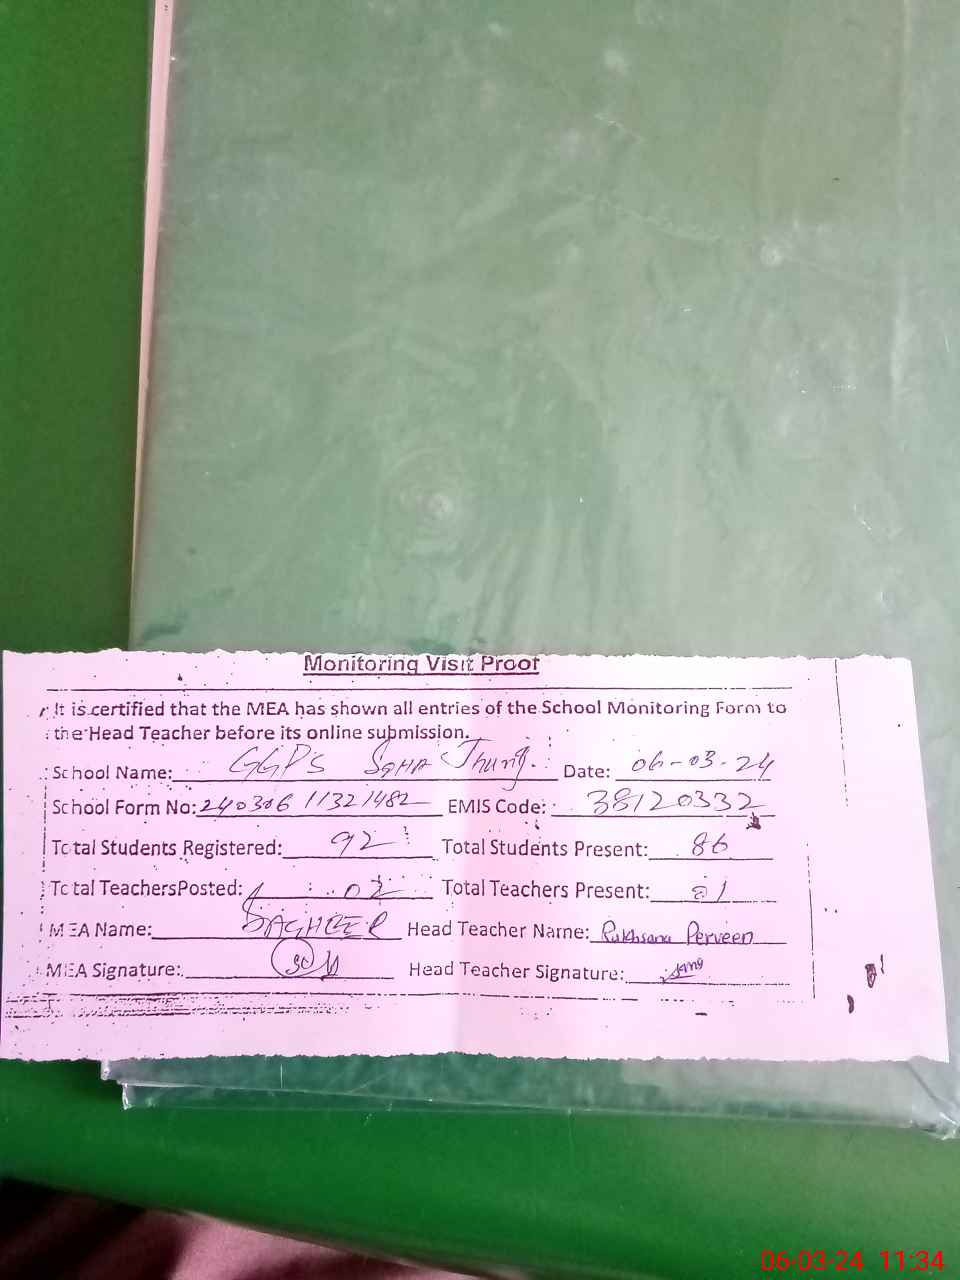 Monitoring Visit Proof
It is certified that the MEA has shown all entries of the School Monitoring Form to
the Head Teacher before its online submission.
School Name: GGPS Jhung. Date: 06-03-24
School Form No: 240306 11321482 EMIS Code: 38120332
Total Students Registered: 92 Total Students Present: 86
Total TeachersPosted: 02 Total Teachers Present: 01
MEA Name: SAGHEER Head Teacher Name: Rukhsana Perveen
MEA Signature: Head Teacher Signature:
06-03-24 11:34